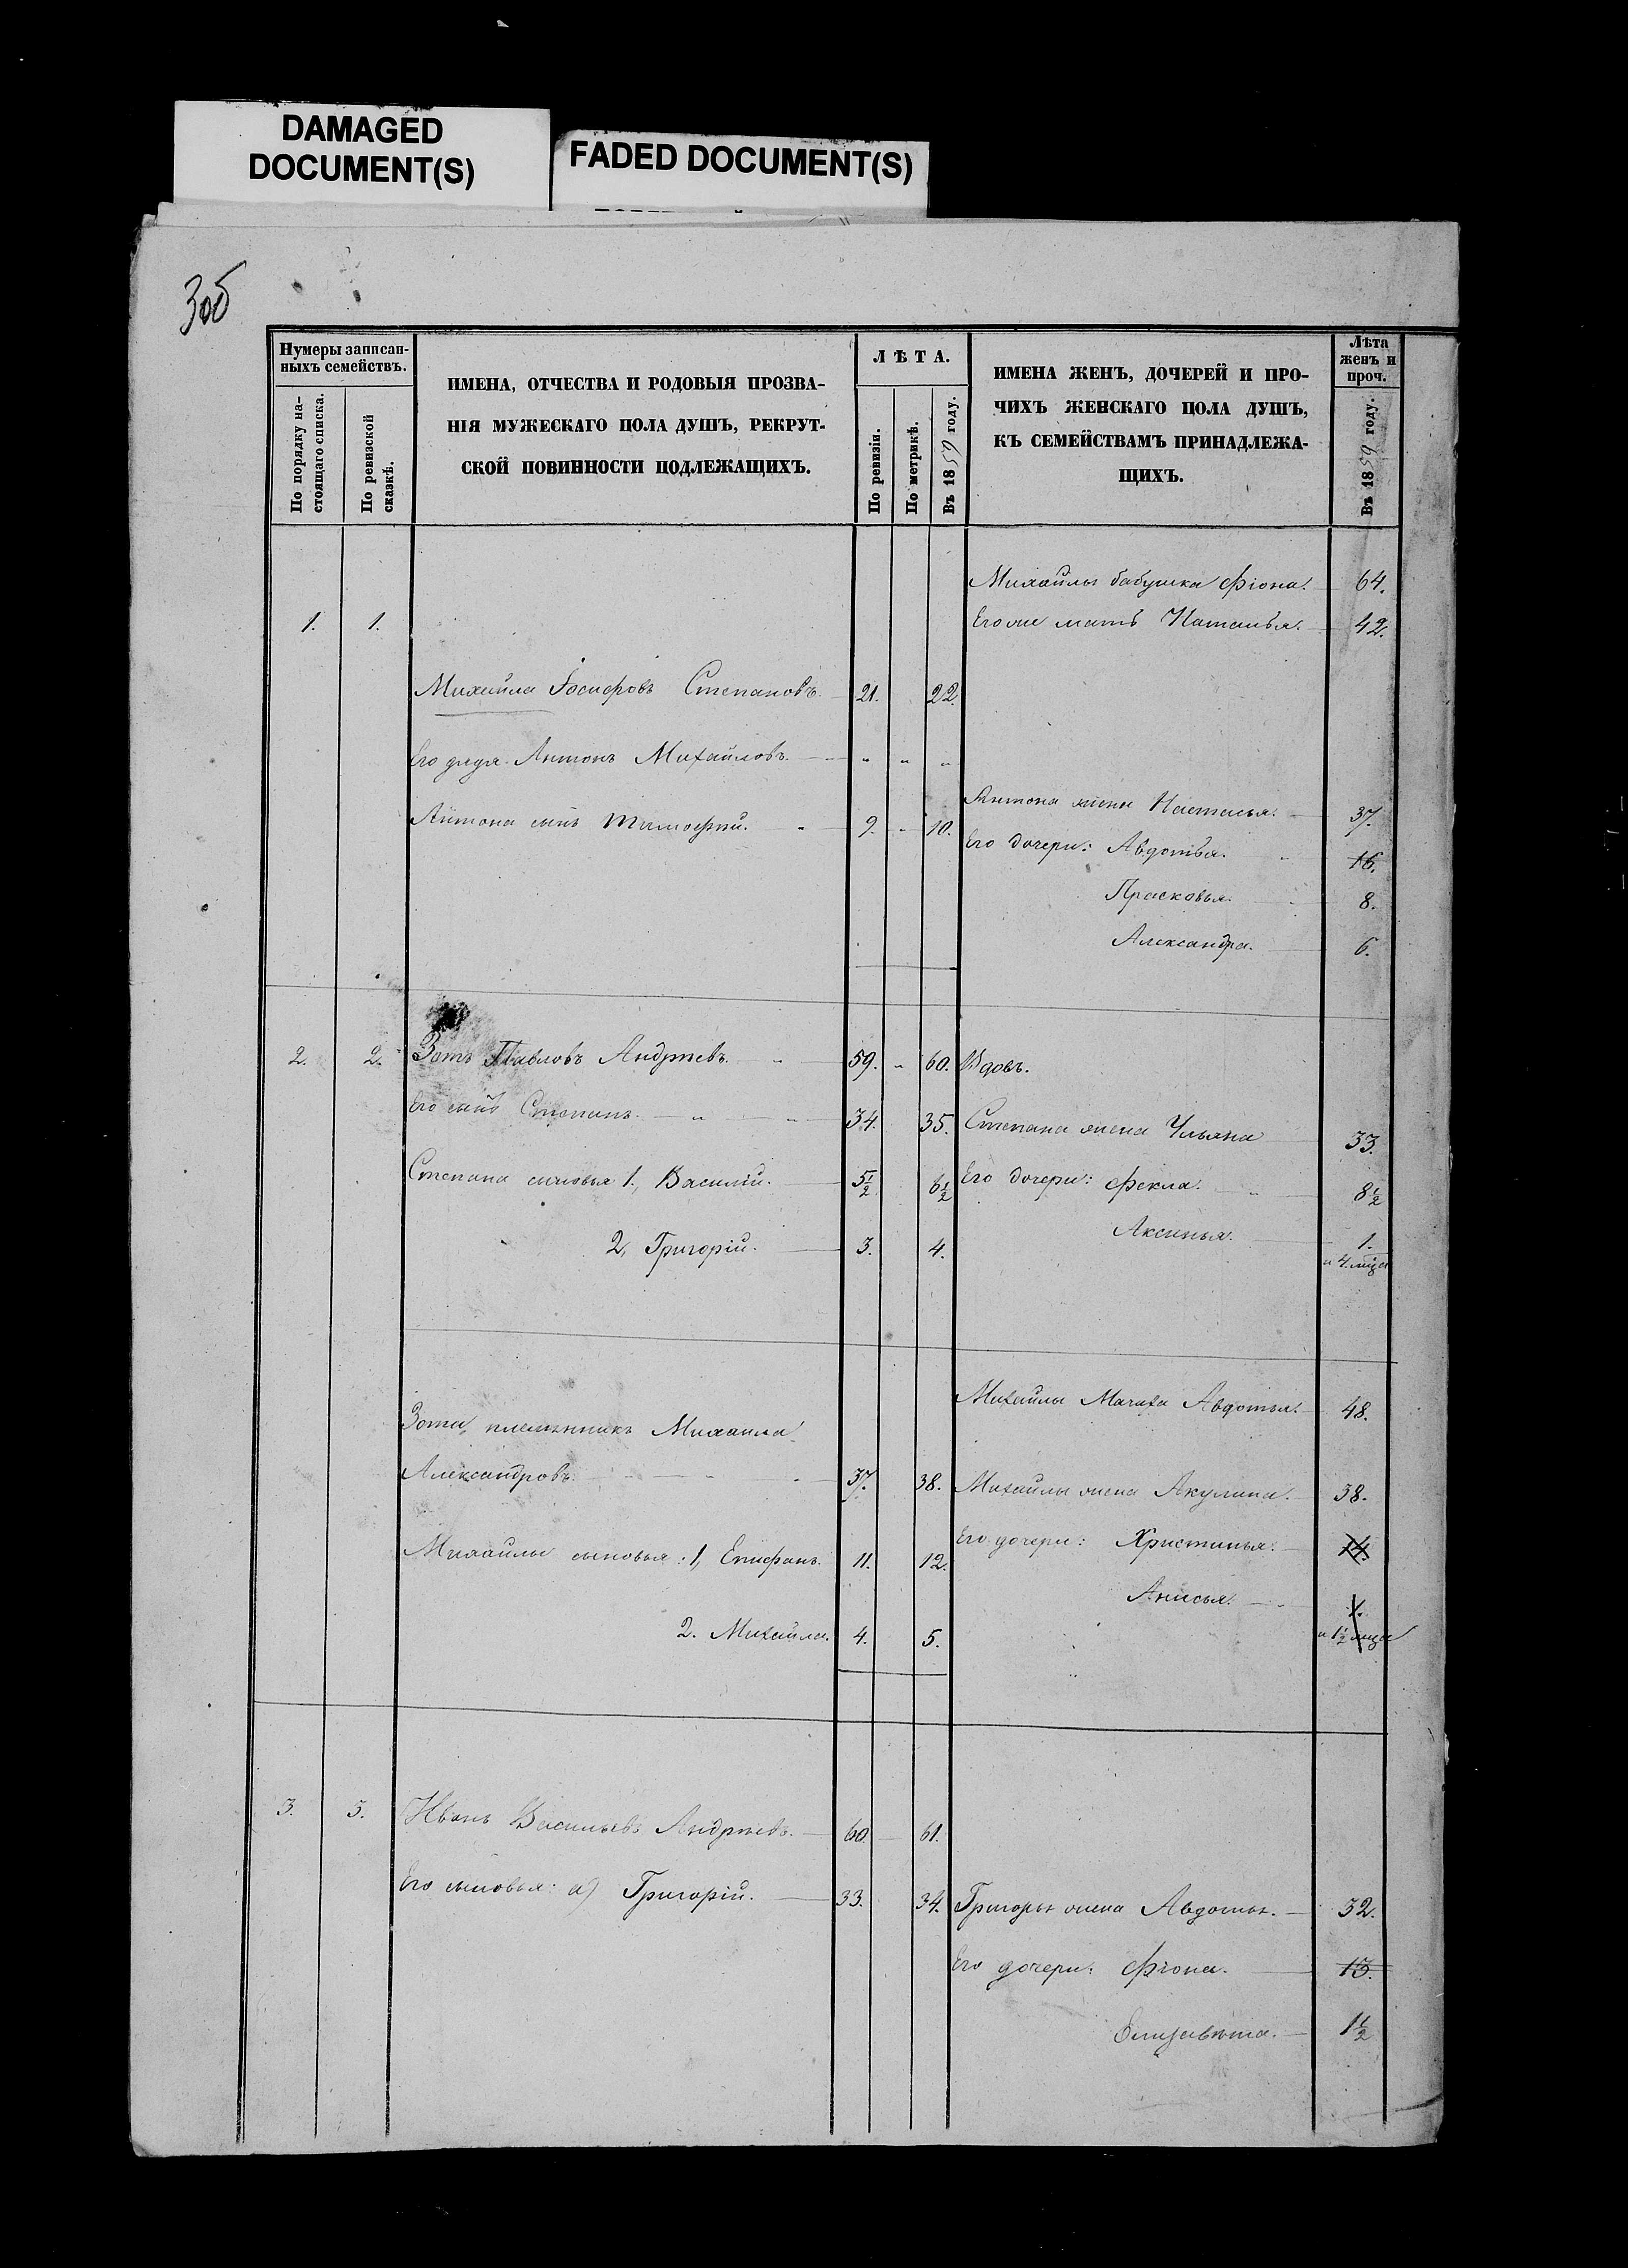 DAMAGED
DOCUMENT(S)
FADED DOCUMENT(S)
Нумеры записан-
ныхъ семействъ.
По порядку на-
стоящаго списка.
По ревизской
сказкѣ.
ИМЕНА, ОТЧЕСТВА И РОДОВЫЯ ПРОЗВА-
НІЯ МУЖЕСКАГО ПОЛА ДУШЪ, РЕКРУТ-
СКОЙ ПОВИННОСТИ ПОДЛЕЖАЩИХЪ.
ЛѢТА.
По ревизіи.
По метрикѣ.
Въ 1859 году.
ИМЕНА ЖЕНЪ, ДОЧЕРЕЙ И ПРО-
ЧИХЪ ЖЕНСКАГО ПОЛА ДУШЪ,
КЪ СЕМЕЙСТВАМЪ ПРИНАДЛЕЖА-
ЩИХЪ.
Лѣта
женъ и
проч.
Въ 1859 году.
Михайлы бабушка Фіона. 64.
1. 1. Его же мать Наталья. 42.
Михайла Іосифовъ Степановъ. 21. 22.
Его дядя Антонъ Михайловъ. " " "
Антона жена Настасья. 37.
Антона сынъ Тимофѣй. 9. " 10.
Его дочери: Авдотья. 16.
Прасковья. 8.
Александра. 6.
2. 2. Зотъ Павловъ Андрѣевъ. 59. " 60. Вдовъ.
Его сынъ Степанъ. 34. 35. Степана жена Ульяна 33.
Степана сыновья 1, Василій. 5½ 6½ Его дочери: Фекла. 8½
2, Григорій. 3. 4. Аксинья. 1.
и 4 мѣца
Михайлы Мачиха Авдотья. 48.
Зота, племянникъ Михаила
Александровъ. 37. 38. Михайлы жена Акулина. 38.
Его дочери: Христинья. 14.
Михайлы сыновья: 1, Епифанъ. 11. 12.
Анисья. 1.
и 1½ мѣца
2. Михайла. 4. 5.
3. 3. Иванъ Васильевъ Андрѣевъ. 60. 61.
Его сыновья: а) Григорій. 33. 34. Григорья жена Авдотья. 32.
Его дочери: Фіона. 13.
Елизавѣта. 1½